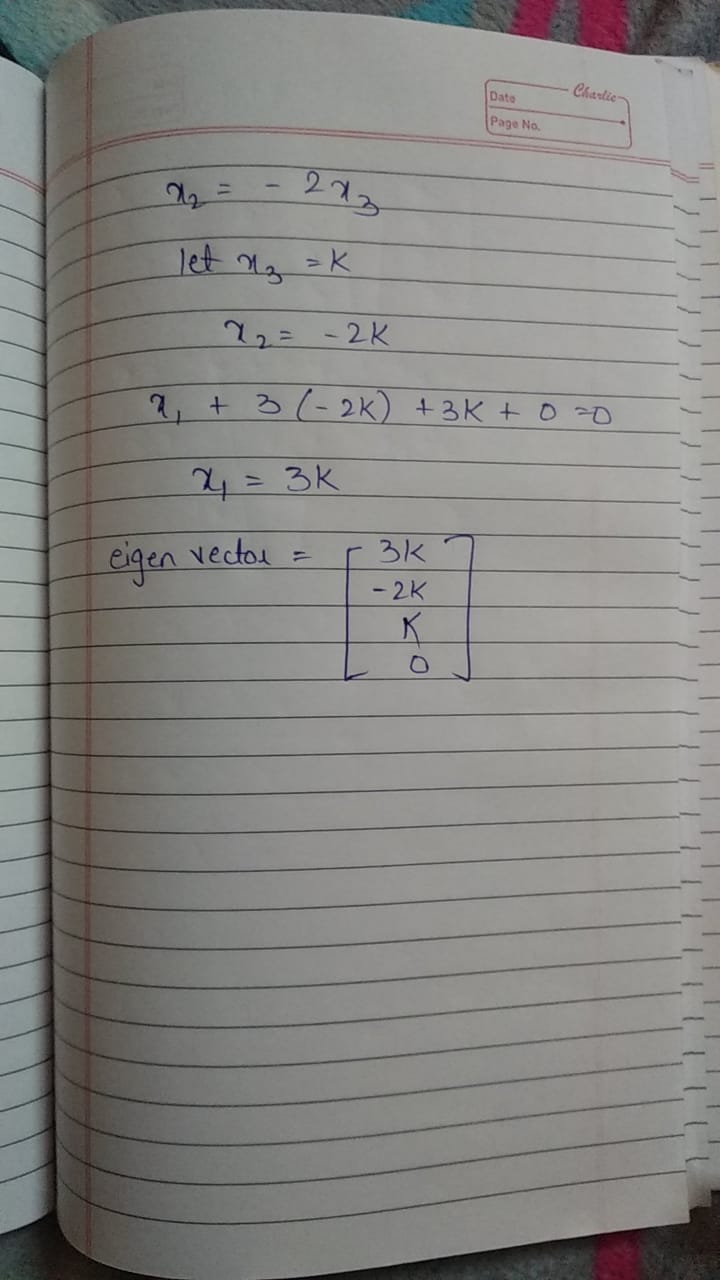 Charlie
Date
Page No.
x₂ = - 2x₃
let x₃ = K
x₂ = -2K
x₁ + 3 (-2K) + 3K + 0 = 0
x₁ = 3K
eigen vector = [ 3K
-2K
K
0 ]